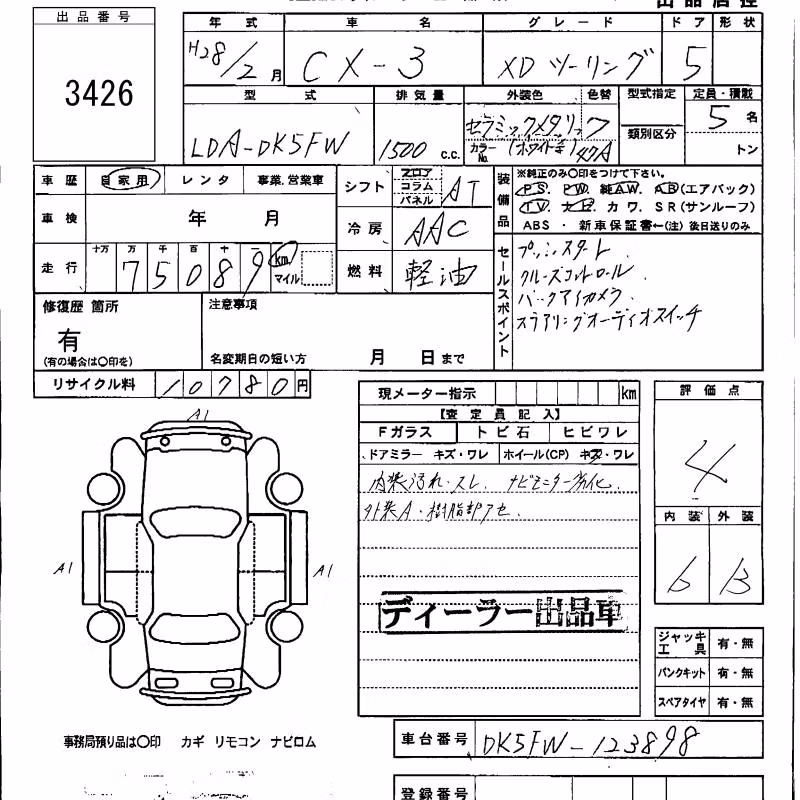 出品番号
3426
年式 車名 グレード ドア 形状
H28/2月 CX-3 XDツーリング 5
型式 排気量 外装色 色替 型式指定 定員・積載
類別区分
LDA-DK5FW 1500 c.c. セラミックメタリック カラーNo. (ホワイト系) 47A 5名
トン
車歴 自家用 レンタ 事業.営業車
車検 年 月
走行 十万 万 千 百 十 一 75089 km マイル
シフト フロア コラム パネル AT
冷房 AAC
燃料 軽油
装備品 ※純正のみ〇印をつけて下さい。
PS. PW. 純AW. AB(エアバック)
TV. ナビ. カワ. SR(サンルーフ)
ABS ・ 新車保証書←(注) 後日送りのみ
セールスポイント
プッシュスタート
クルーズコントロール
バックアイカメラ
ステアリングオーディオスイッチ
修復歴 箇所
有
(有の場合は〇印を)
注意事項
名変期日の短い方 月 日まで
リサイクル料 10780円
現メーター指示 km
【査定員記入】
Fガラス トビ石 ヒビワレ
ドアミラー キズ・ワレ ホイール(CP) キズ・ワレ
内装汚れ・スレ. ナビモニター劣化.
外装A・樹脂部アセ.
ディーラー出品車
評価点
4
内装 外装
6 B
ジャッキ工具 有・無
パンクキット 有・無
スペアタイヤ 有・無
A1
A1
A1
事務局預り品は〇印 カギ リモコン ナビロム
車台番号 DK5FW-123898
登録番号